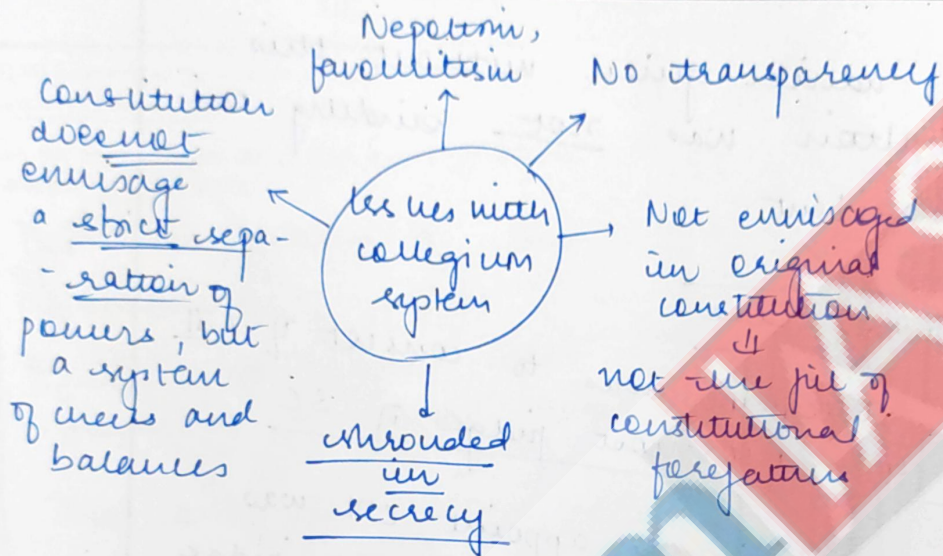 Nepotism,
favouritism
No transparency
Constitution
does not
envisage
a strict sepa-
-ration of
powers, but
a system
of checks and
balances
Issues with
collegium
system
Not envisaged
in original
constitution
⇓
not the of
constitutional
forefathers
shrouded
in
secrecy
IAS